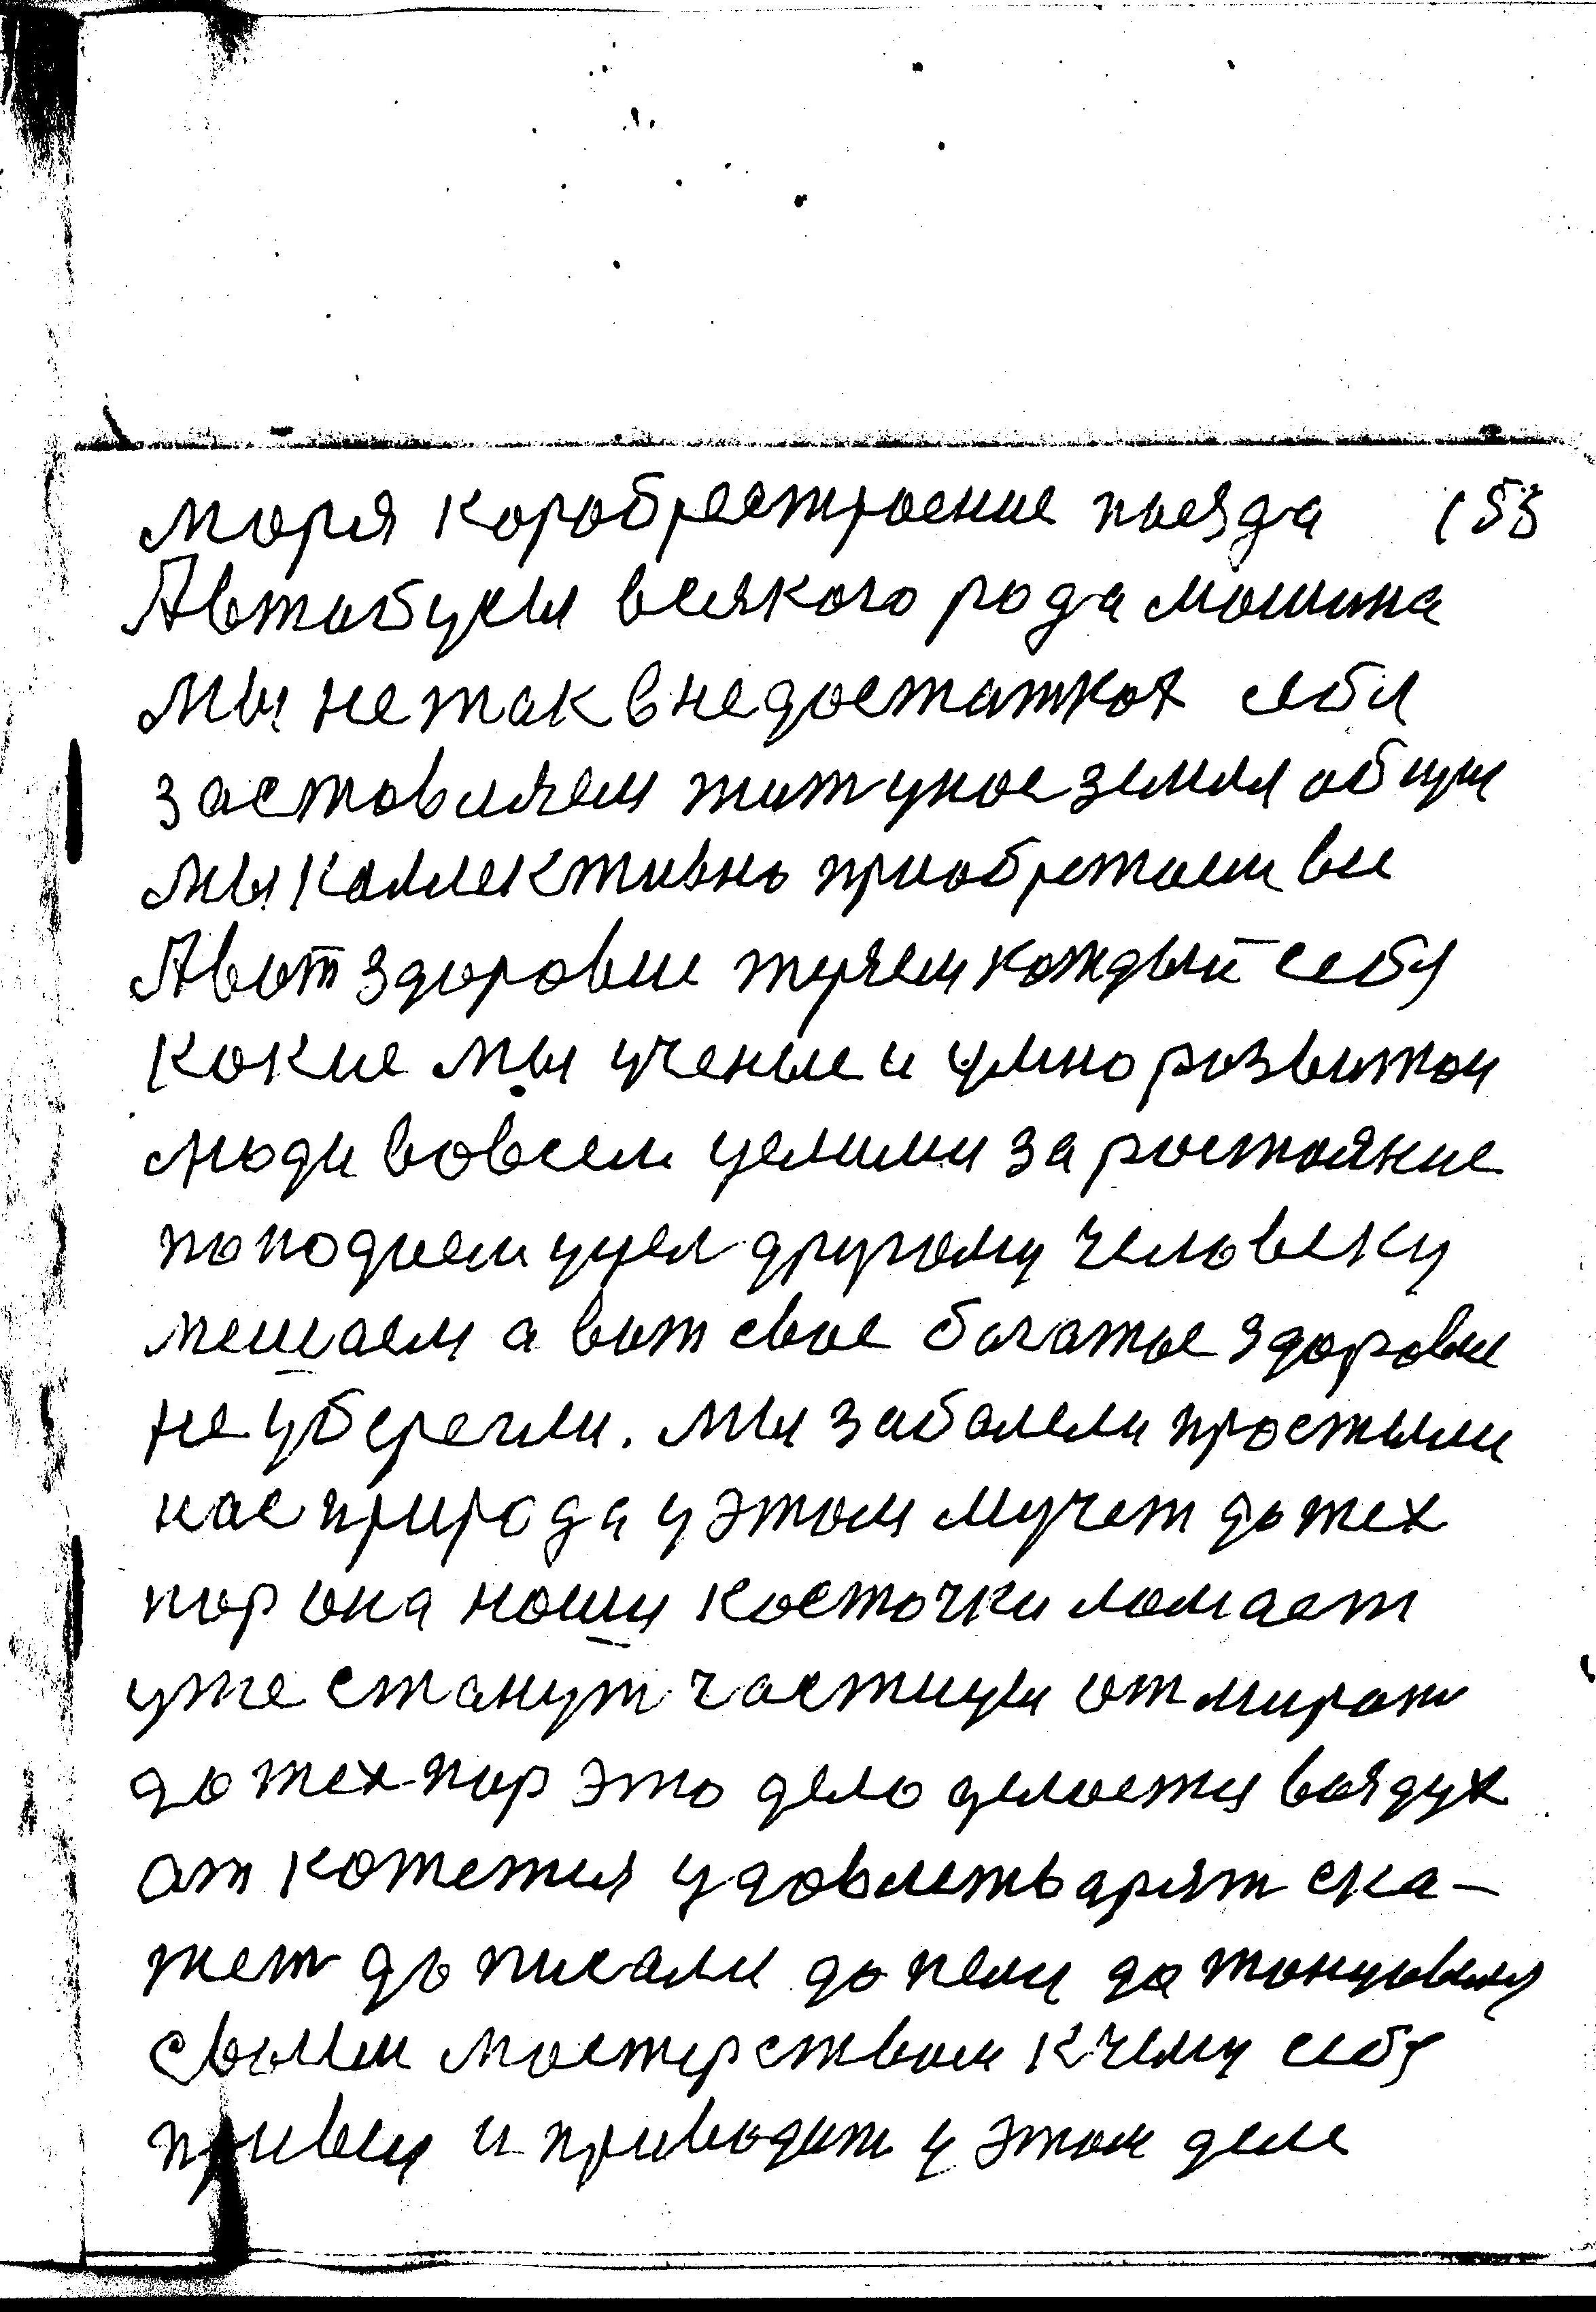 моря корабрестроение поезда 153
Автобусы всякого рода машина
мы не так в недостатках себя
заставляем жит у нас земля общи
мы коллективно приобретаем все
А вот здоровие теряем каждый себя
какие мы ученые и умно развитаи
люди во всем целими за растояние
пападаем у цел другому человеку
мешаем а вот свое богатое здоровие
не уберегли. Мы заболели простыли
нас природа у этом мучет до тех
пор она наши косточки ломает
уже станут частицы отмират
до тех пор это дело делается воздух
откажется удовлетварят ска-
жет до писали до пели до танцовали
своим мастерством к чему себя
привели и приводит у этом деле